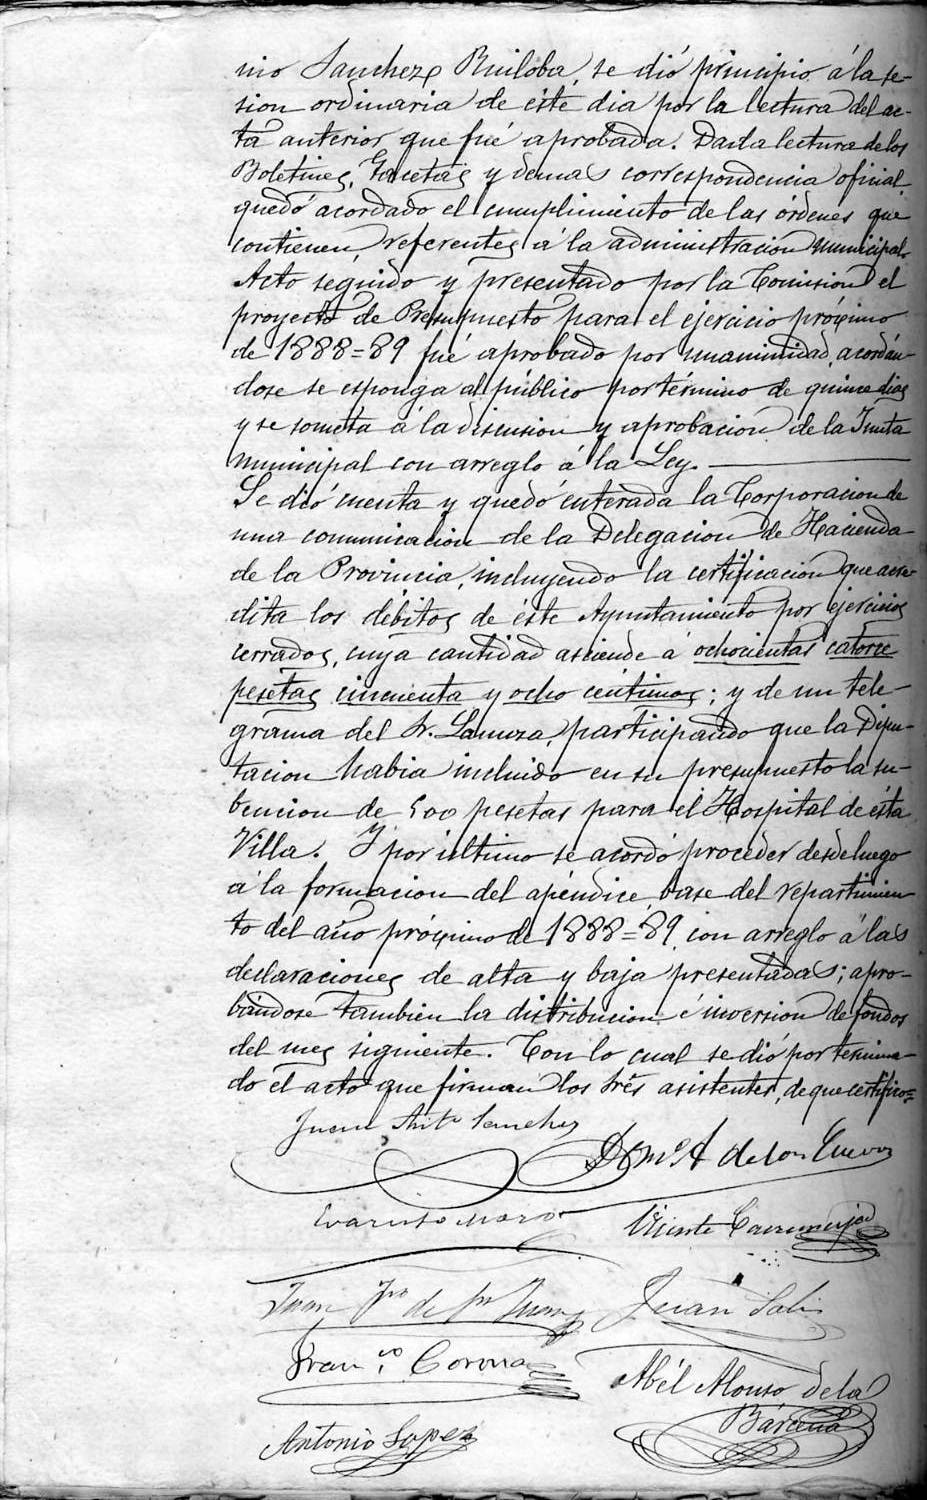 nio Sanchez Ruiloba, se dió principio á la se-
sion ordinaria de éste dia por la lectura del ac-
ta anterior que fué aprobada. Dada lectura de los
Boletines, Gacetas y demas correspondencia oficial,
quedó acordado el cumplimiento de las órdenes que
contienen, referentes á la administracion municipal.
Acto seguido y presentado por la Comision el
proyecto de Presupuesto para el ejercicio próximo
de 1888=89 fué aprobado por unanimidad, acordán-
dose se esponga al público por término de quince dias
y se someta á la discusion y aprobacion de la Junta
municipal con arreglo á la Ley.
Se dió cuenta y quedó enterada la Corporacion de
una comunicacion de la Delegacion de Hacienda
de la Provincia, incluyendo la certificacion que acre-
dita los débitos de éste Ayuntamiento por ejercicios
cerrados, cuya cantidad asciende á ochocientas catorce
pesetas cincuenta y ocho centimos; y de un tele-
grama del Sr. Lamuza, participando que la Dipu-
tacion habia incluido en su presupuesto la su-
bencion de 500 pesetas para el Hospital de ésta
Villa. Y por último se acordó proceder desde luego
á la formacion del apéndice, base del repartimien-
to del año próximo de 1888=89, con arreglo á las
declaraciones de alta y baja presentadas; apro-
bándose tambien la distribucion é inversion de fondos
del mes siguiente. Con lo cual se dió por termina-
do el acto que firman los Sres asistentes, de que certifico=
Juan Anto Sanchez
Domo A de los Cuevas
Evaristo
Vicente
Juan Juan
Franco Corona
Abél Alonso de la
Bárcena
Antonio Lopez